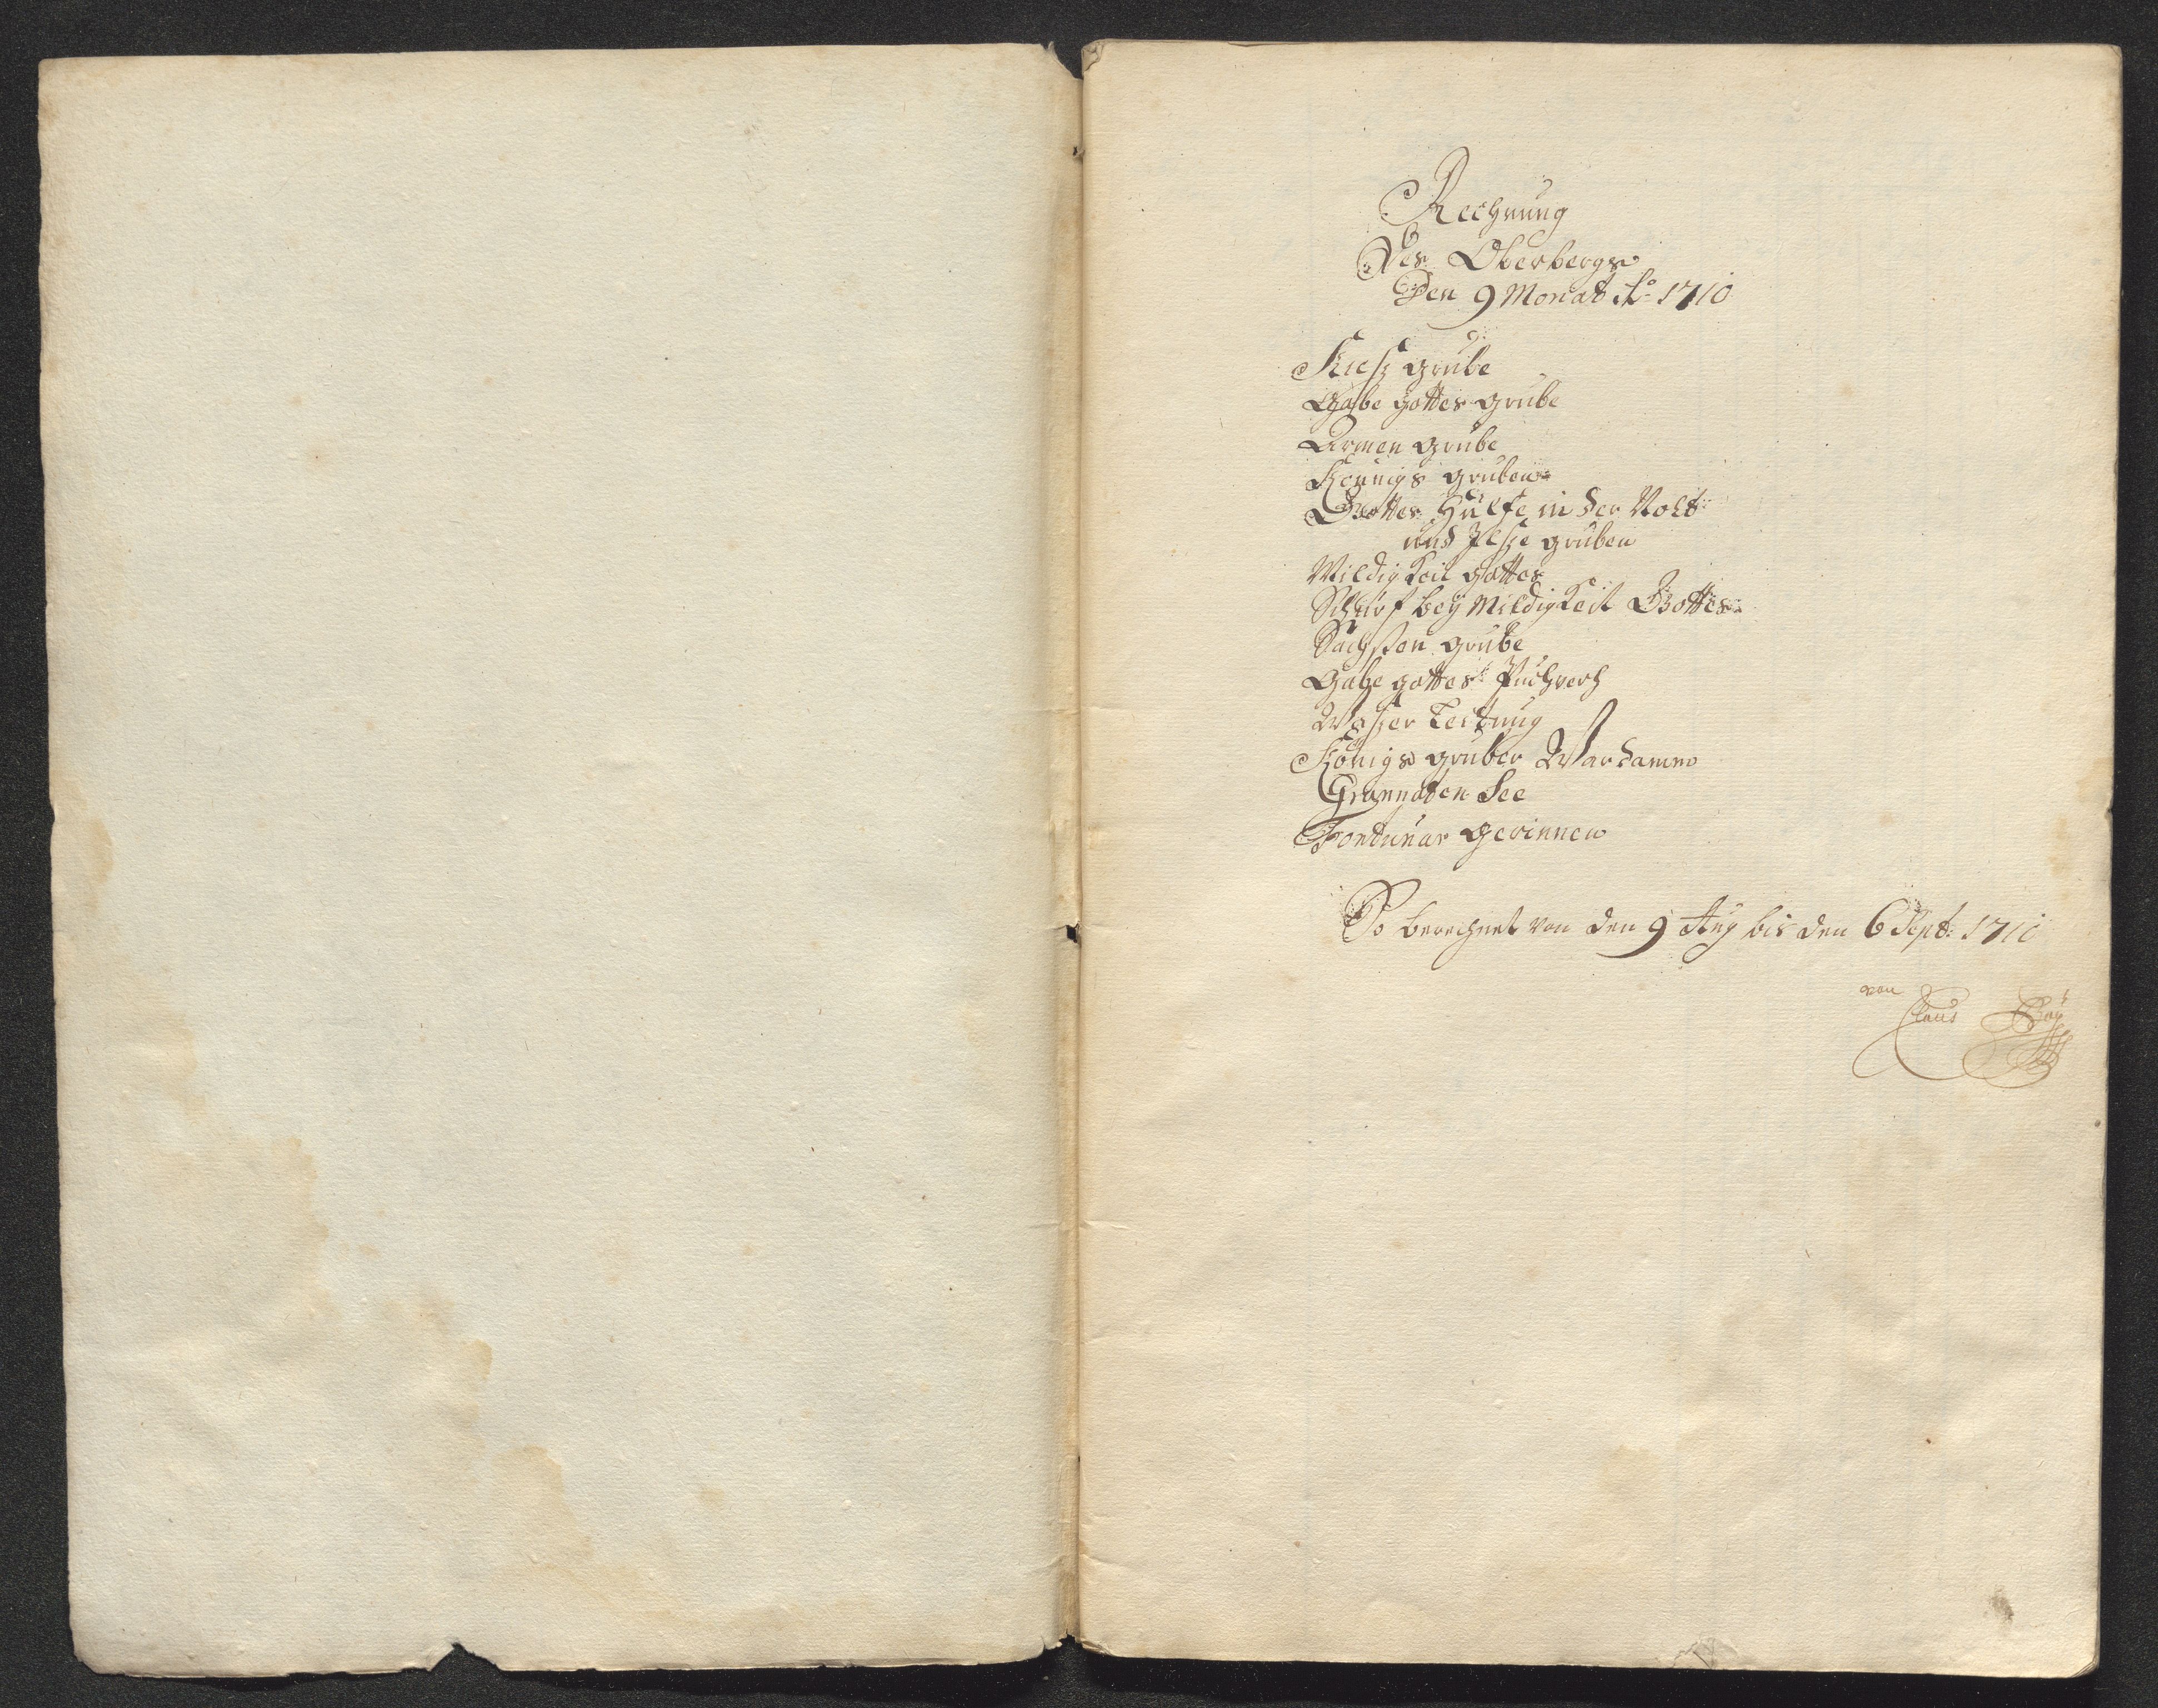 Rechnung
Des Oberbergs
Den 9 Monat Ao 1710
Kiesz grube
Gabe gottes grube
Armen grube
Königs gruben
Gottes Hülfe in der Noht
und gruben
Mildigkeit gottes
Schürf beÿ Mildigkeit Gottes
Sachsen grube
Gabe gottes Puchwerch
Waszer Leitung
Königs gruber
Grannaten See
Fortunar gerinnen
So berechnet von den 9 Aug bis den 6 Sept: 1710
von
Claus